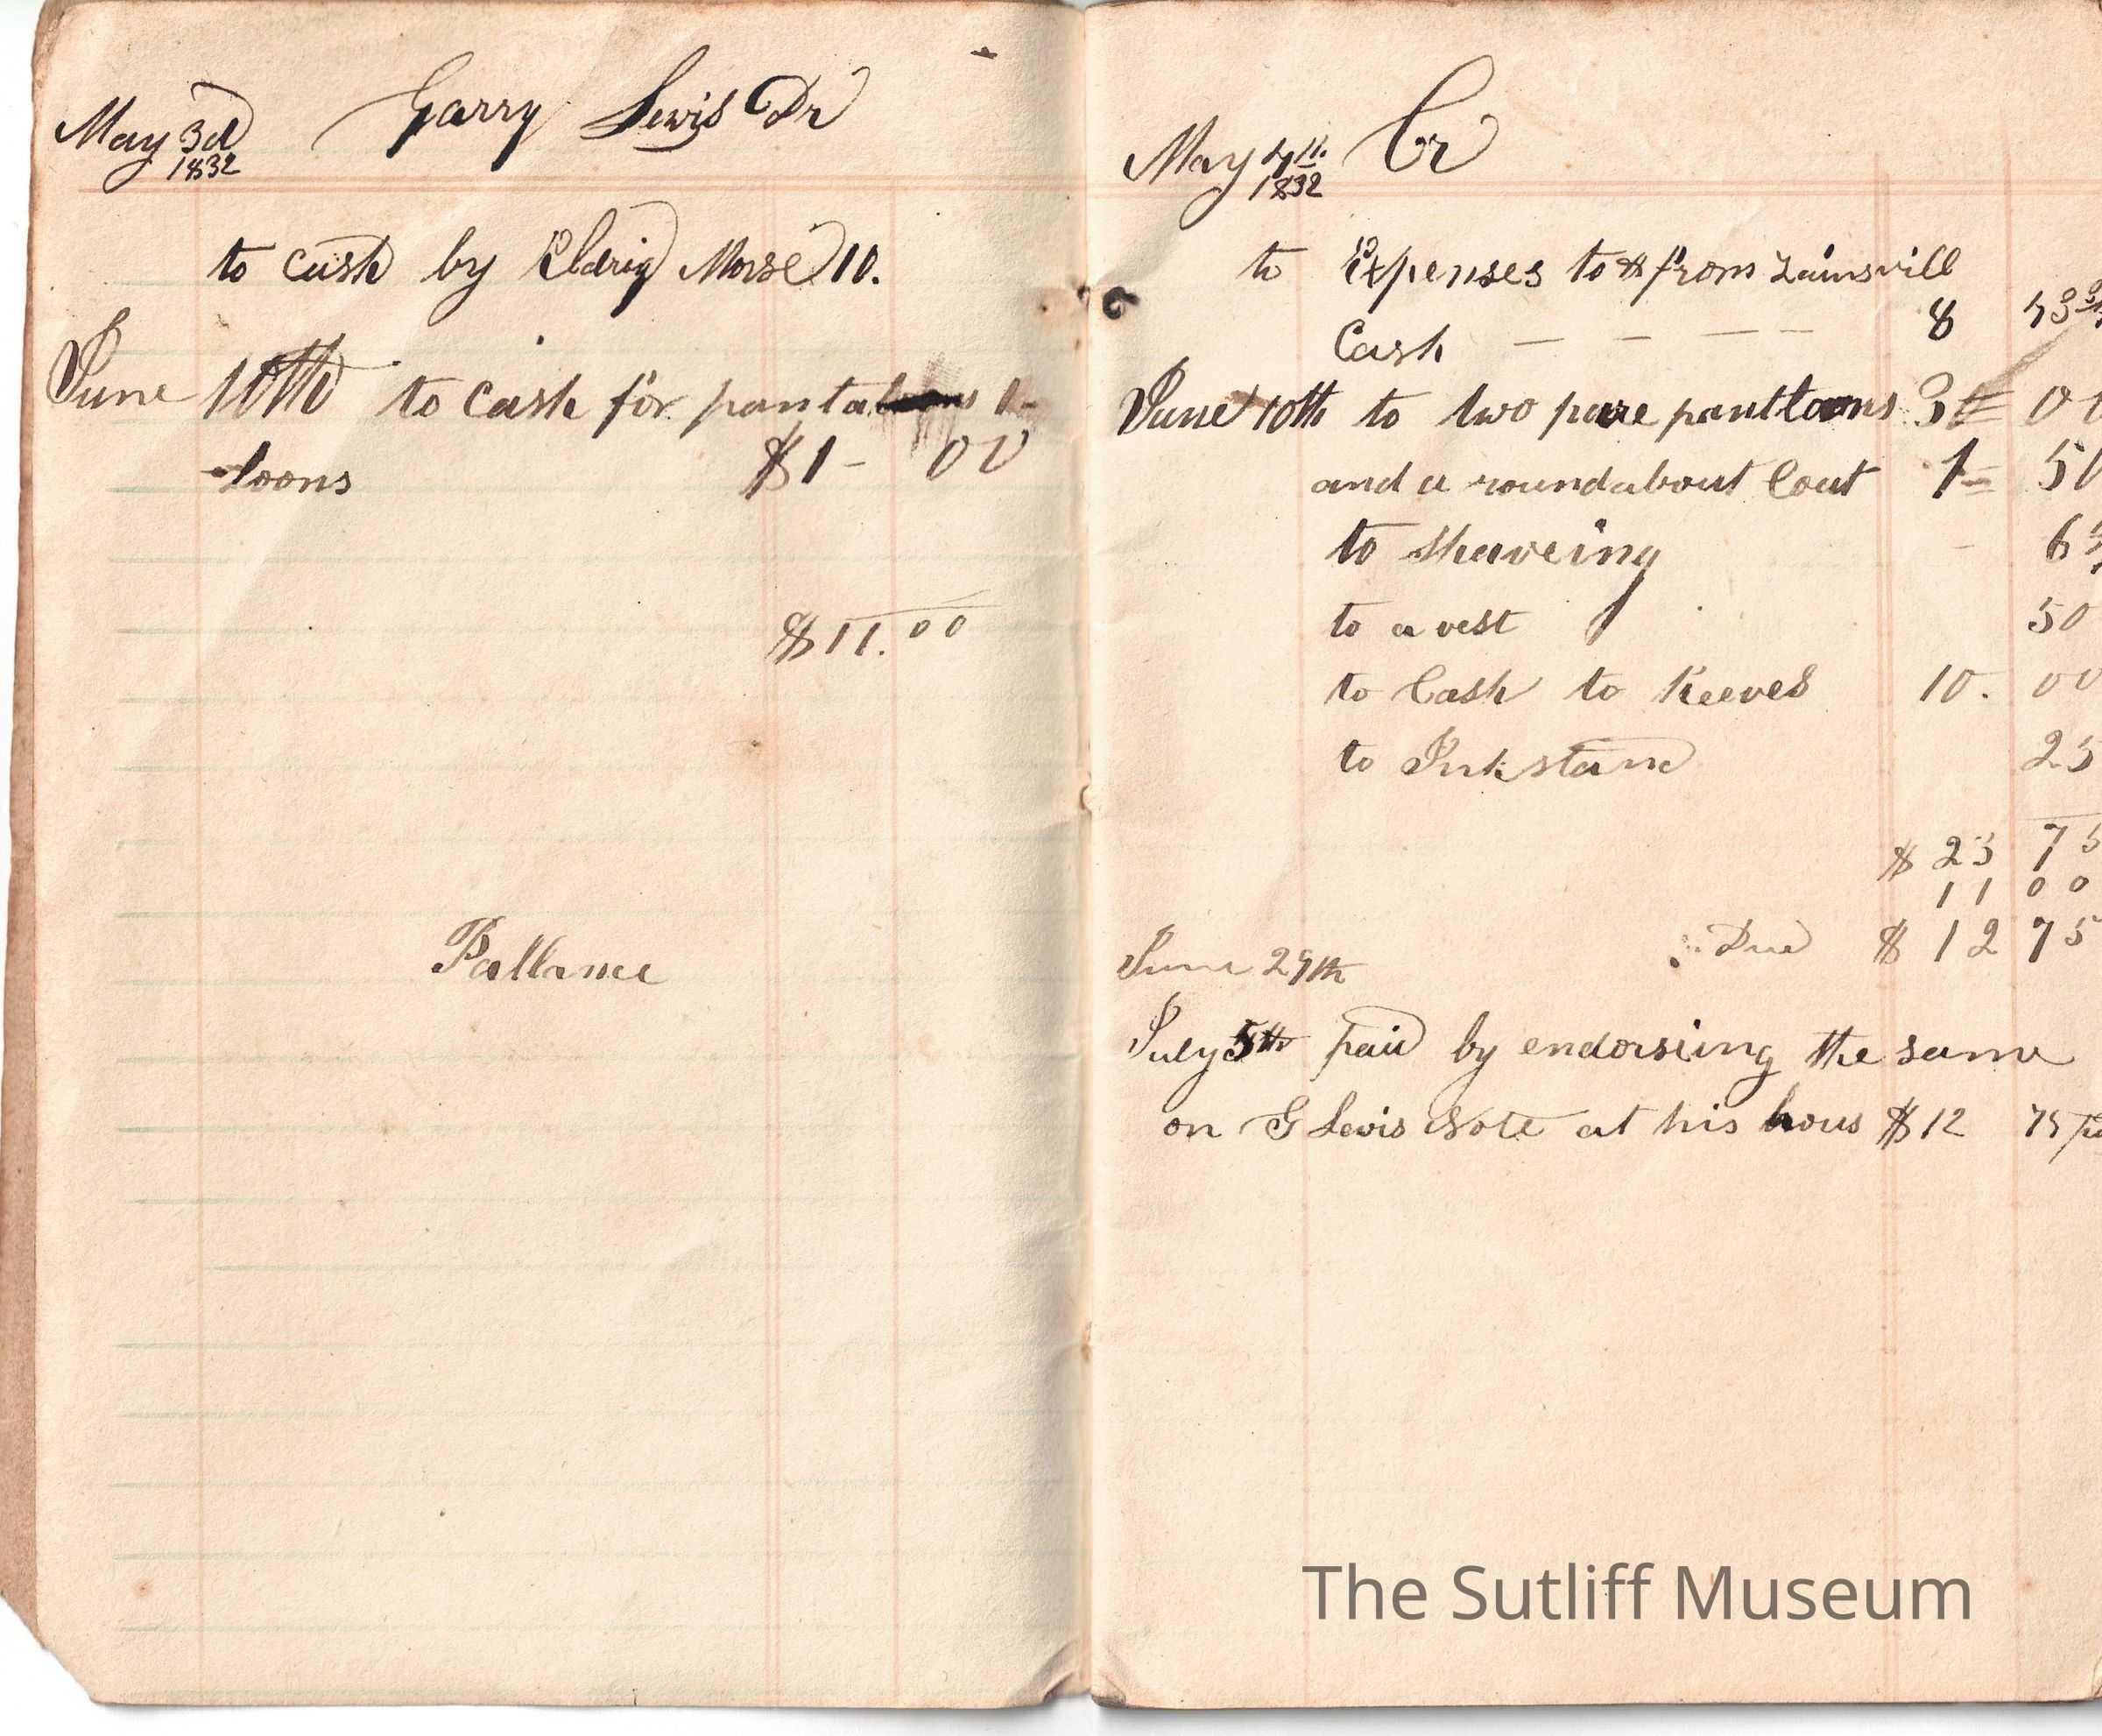 May 3d Garry Lewis Dr
1832
to cash by Eldrig Morse 10.
June 10th to cash for panta
loons $1- 00
$11.00
Ballance
May 4th. Cr
1832
to Expenses to & from Zainsvill
Cash - - - - 8 43
June 10th to two pare panttloons 3= 00
and a roundabout Coat 1= 50
to Shaveing 6
to a vest 50
to Cash to Reeves 10. 00
to Inkstand 25
$ 23 75
11 00
Due $ 12 75
June 29th
July 5th paid by endorsing the same
on G Lewis Note at his hous $12 75
The Sutliff Museum